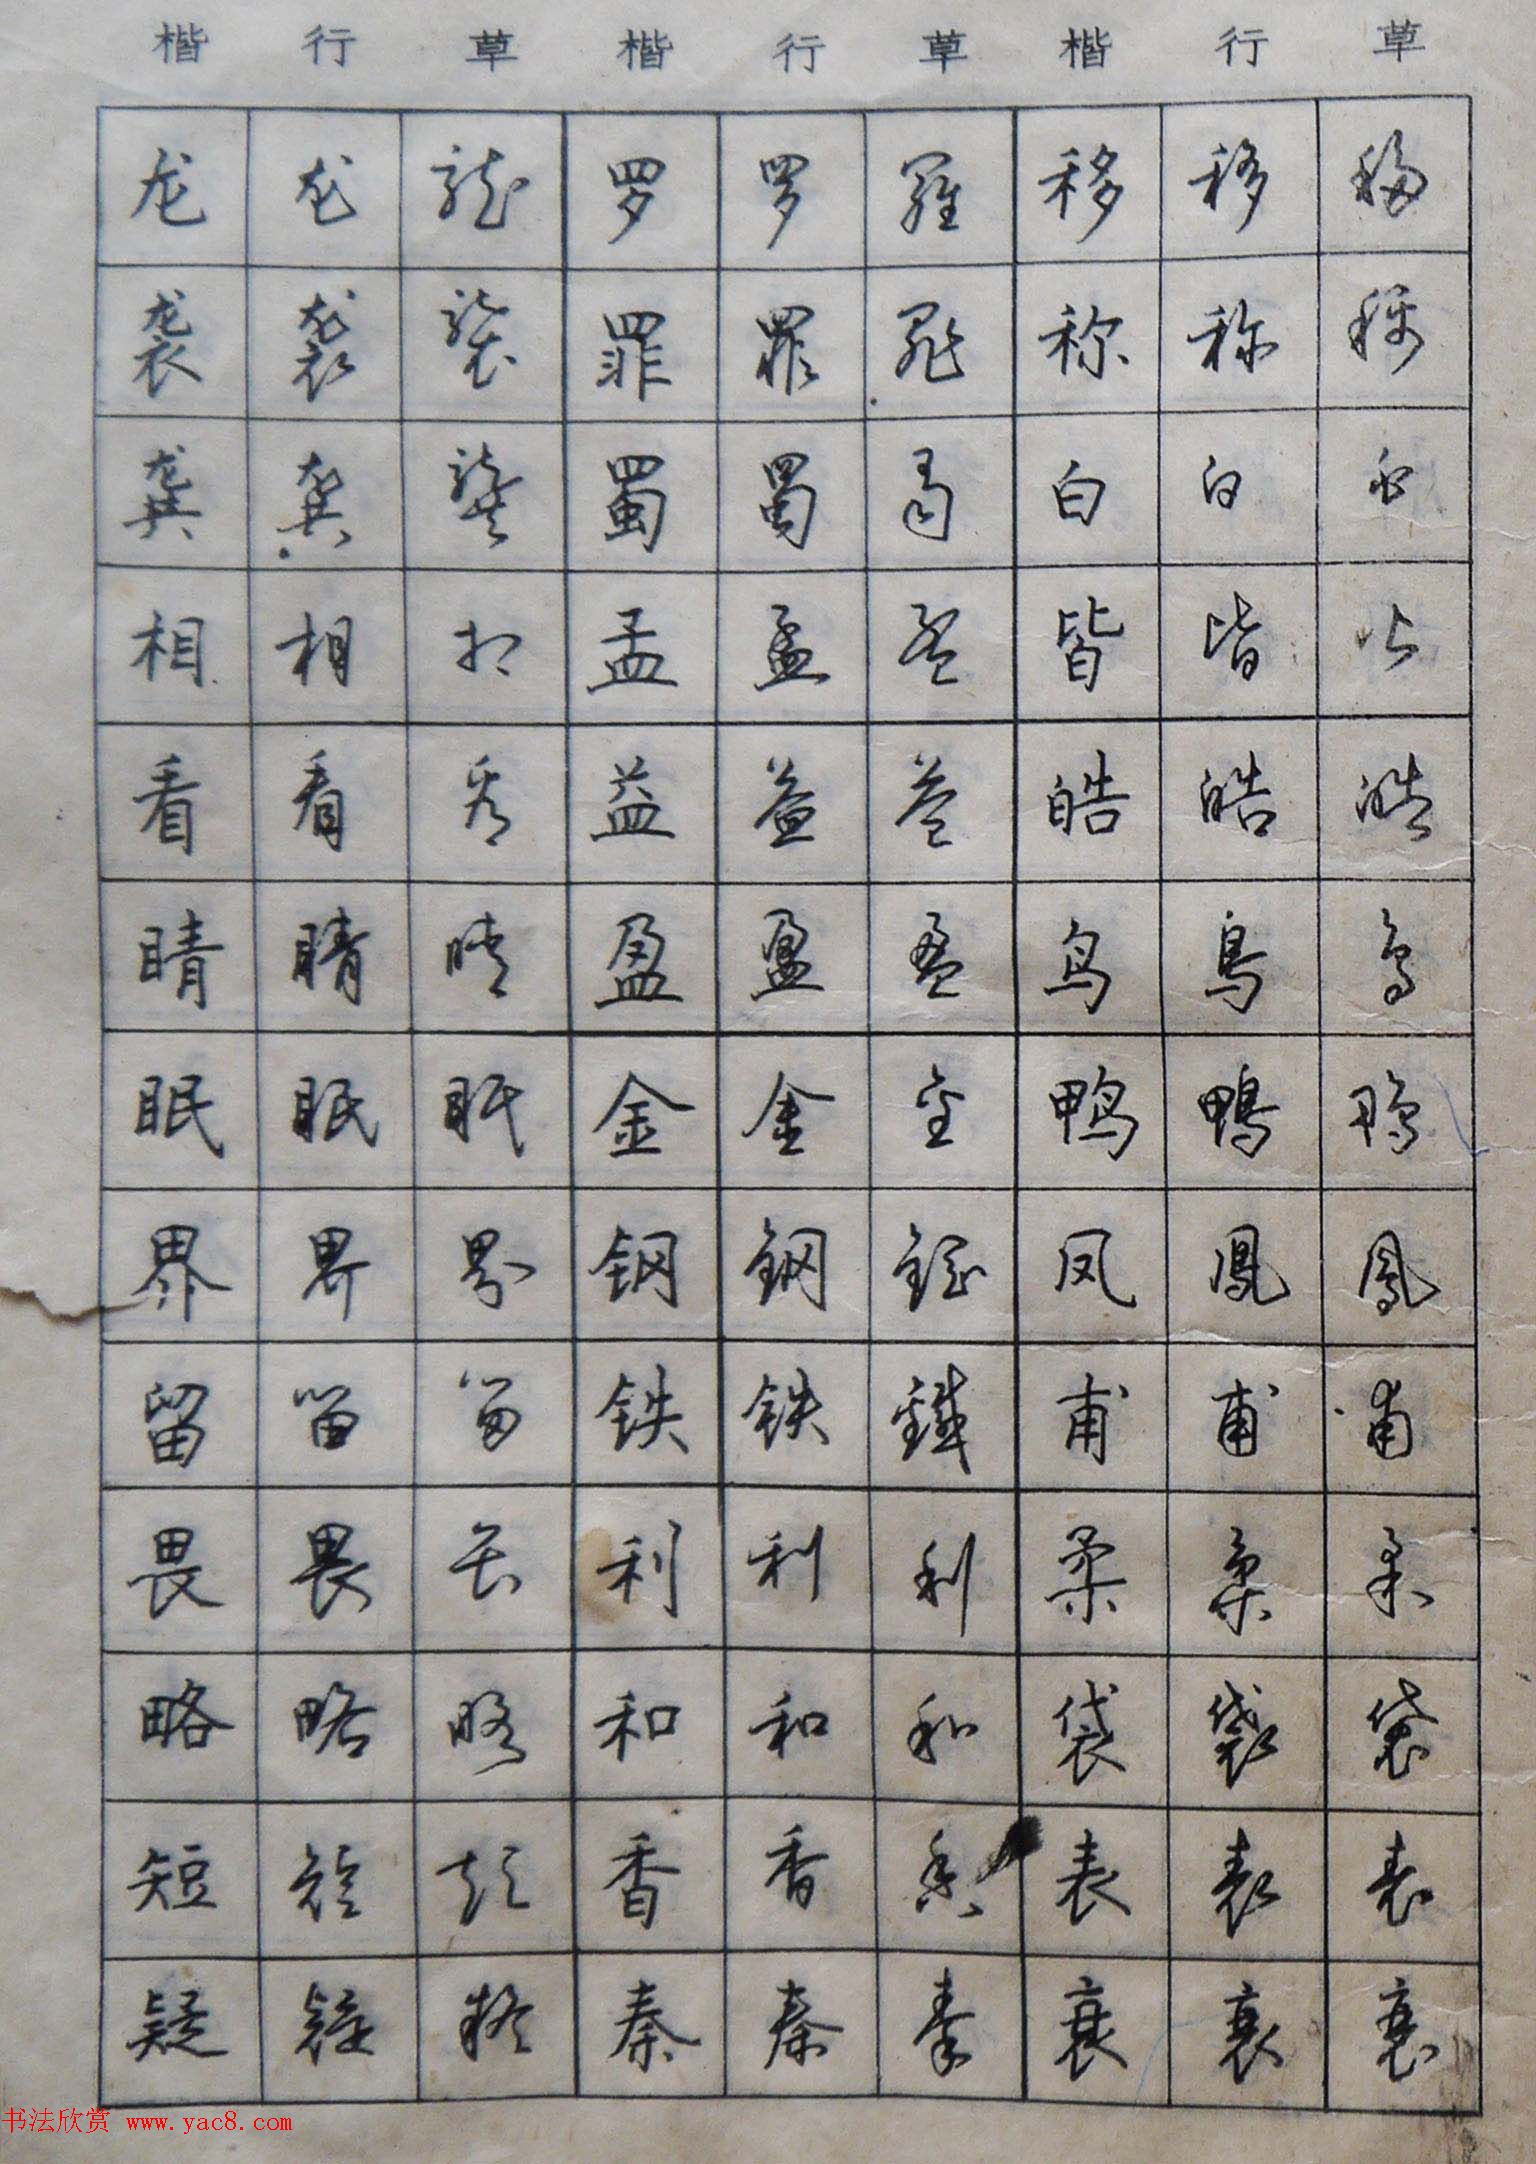 楷 行 草 楷 行 草 楷 行 草
龙 龙 龍 罗 罗 羅 移 移 移
袭 袭 襲 罪 罪 罪 称 称 稱
龚 龚 龔 蜀 蜀 蜀 白 白 白
相 相 相 孟 孟 孟 皆 皆 皆
看 看 看 益 益 益 皓 皓 皓
睛 睛 睛 盈 盈 盈 鸟 鳥 鳥
眠 眠 眠 金 金 金 鸭 鴨 鴨
界 界 界 钢 鋼 鋼 凤 鳳 鳳
留 留 留 铁 铁 鐵 甫 甫 甫
畏 畏 畏 利 利 利 柔 柔 柔
略 略 略 和 和 和 袋 袋 袋
短 短 短 香 香 香 表 表 表
疑 疑 疑 秦 秦 秦 衰 衰 衰
书法欣赏 www.yac8.com